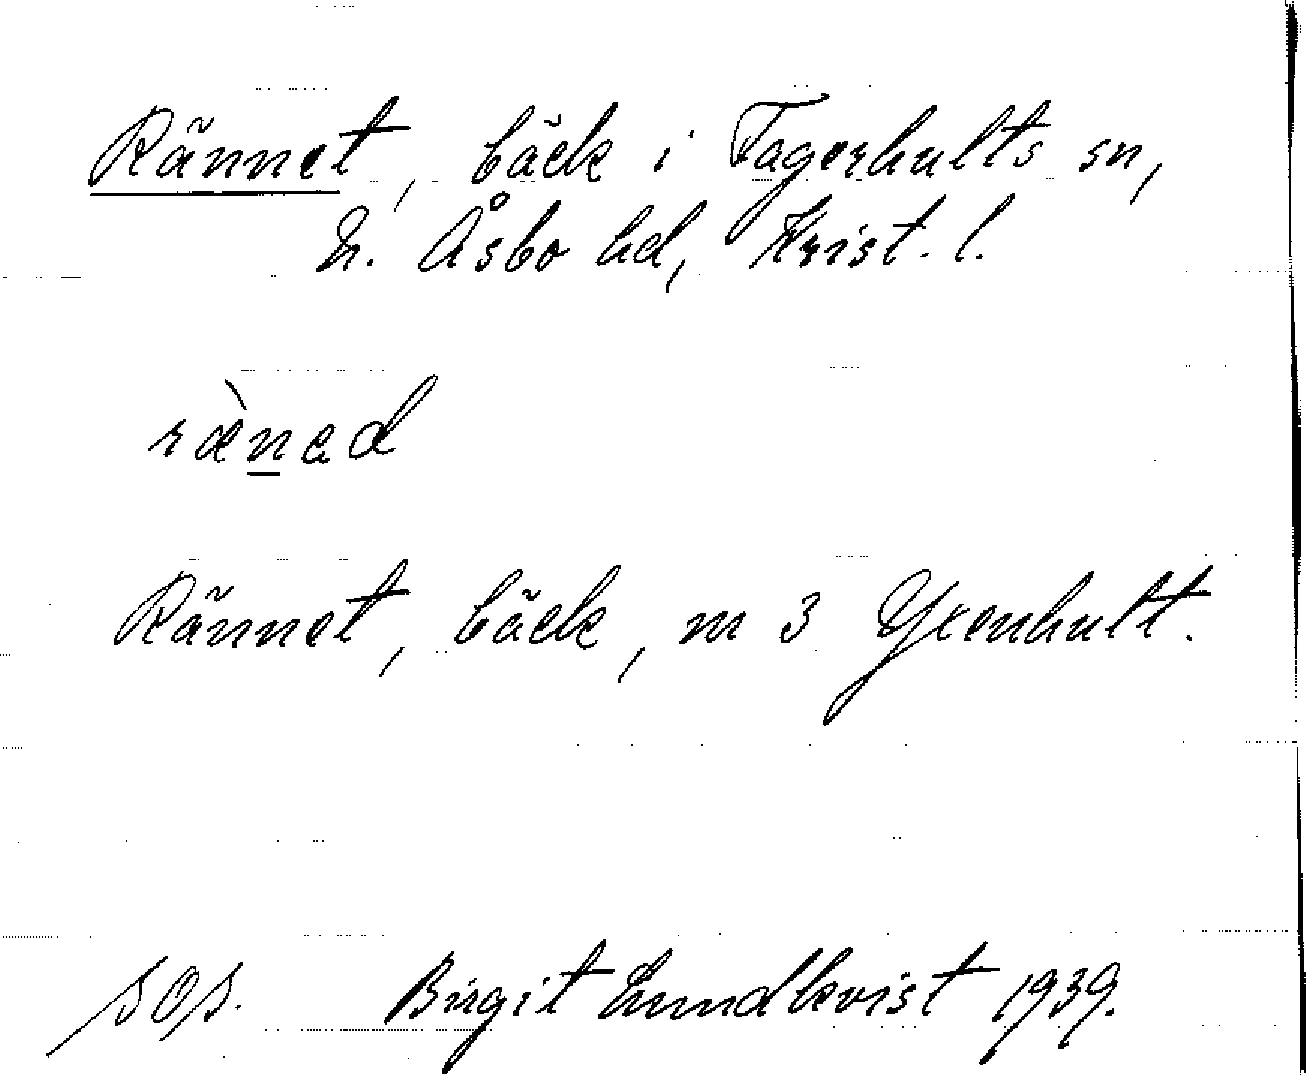 Rännet, bäck i Fagerhults sn,
N. Åsbo hd, Krist. l.
ræ̀n̲ed
Rännet, bäck, m 3 Yxenhult.
Birgit Lundkvist 1939.